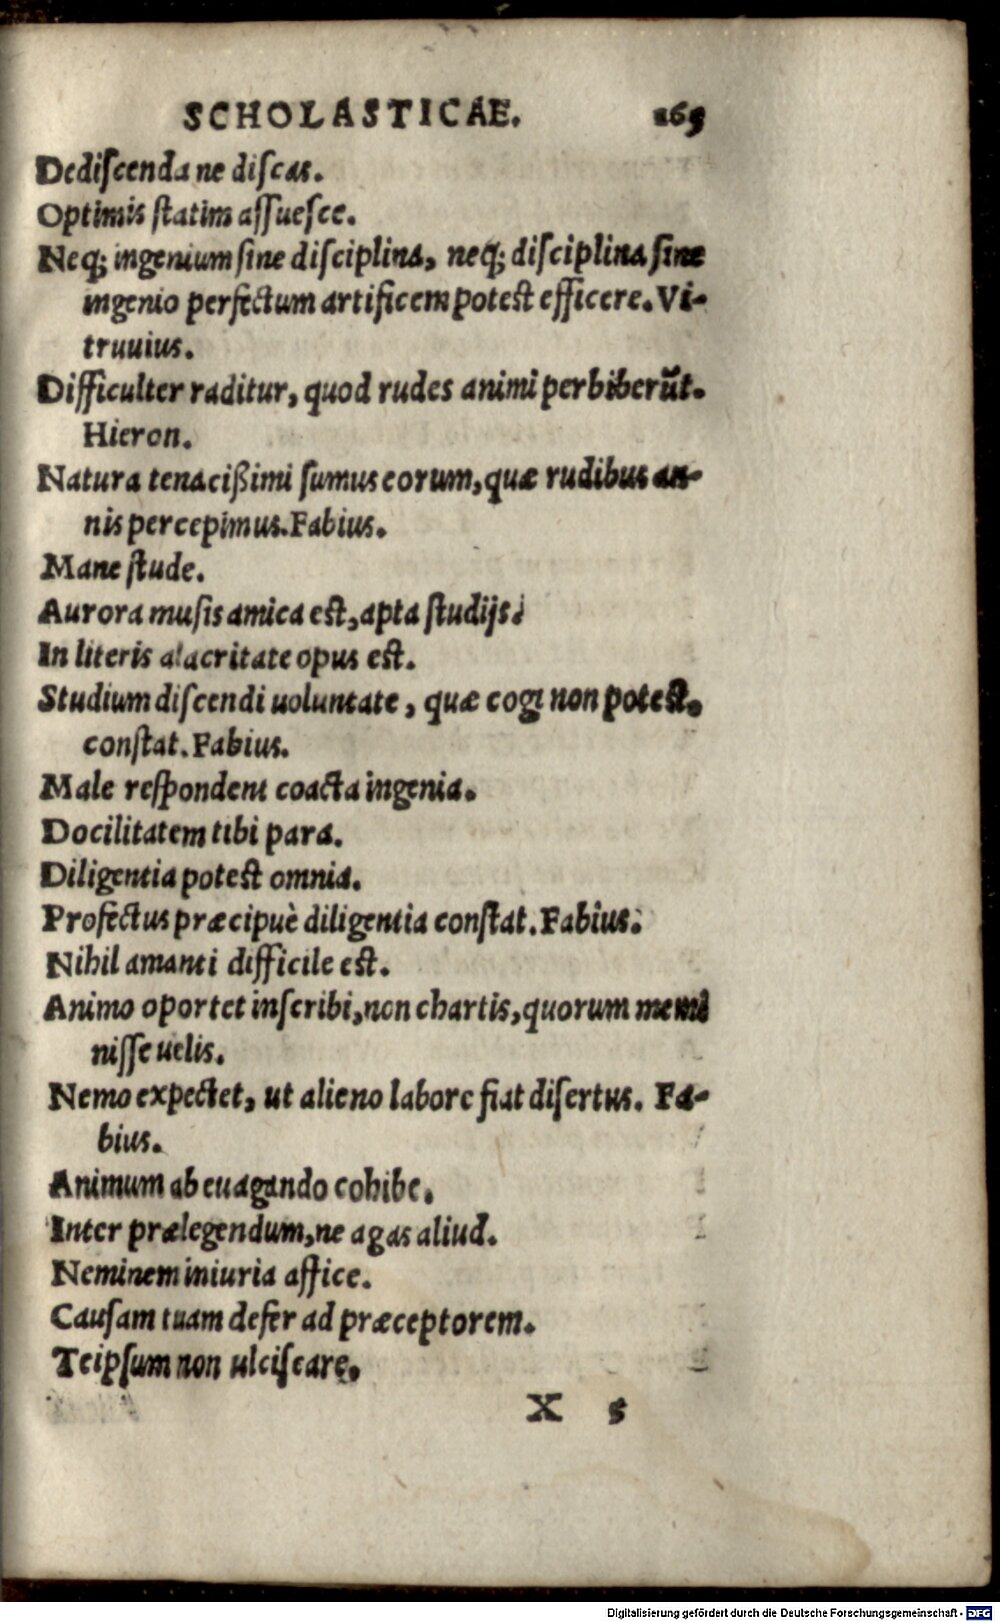 SCHOLASTICAE. 165
Dediscenda ne discas.
Optimis statim assuesce.
Neq; ingenium sine disciplina, neq; disciplina sine
ingenio perfectum artificem potest efficere. Vi-
truuius.
Difficulter raditur, quod rudes animi perbiberūt.
Hieron.
Natura tenacißimi sumus eorum, quæ rudibus an-
nis percepimus. Fabius.
Mane stude.
Aurora musis amica est, apta studijs.
In literis alacritate opus est.
Studium discendi uoluntate, quæ cogi non potest,
constat. Fabius.
Male respondent coacta ingenia.
Docilitatem tibi para.
Diligentia potest omnia.
Profectus præcipuè diligentia constat. Fabius.
Nihil amanti difficile est.
Animo oportet inscribi, non chartis, quorum memi
nisse uelis.
Nemo expectet, ut alieno labore fiat disertus. Fa-
bius.
Animum ab euagando cohibe.
Inter prælegendum, ne agas aliud.
Neminem iniuria affice.
Causam tuam defer ad præceptorem.
Teipsum non ulciscare.
X 5
Digitalisierung gefördert durch die Deutsche Forschungsgemeinschaft - DFG